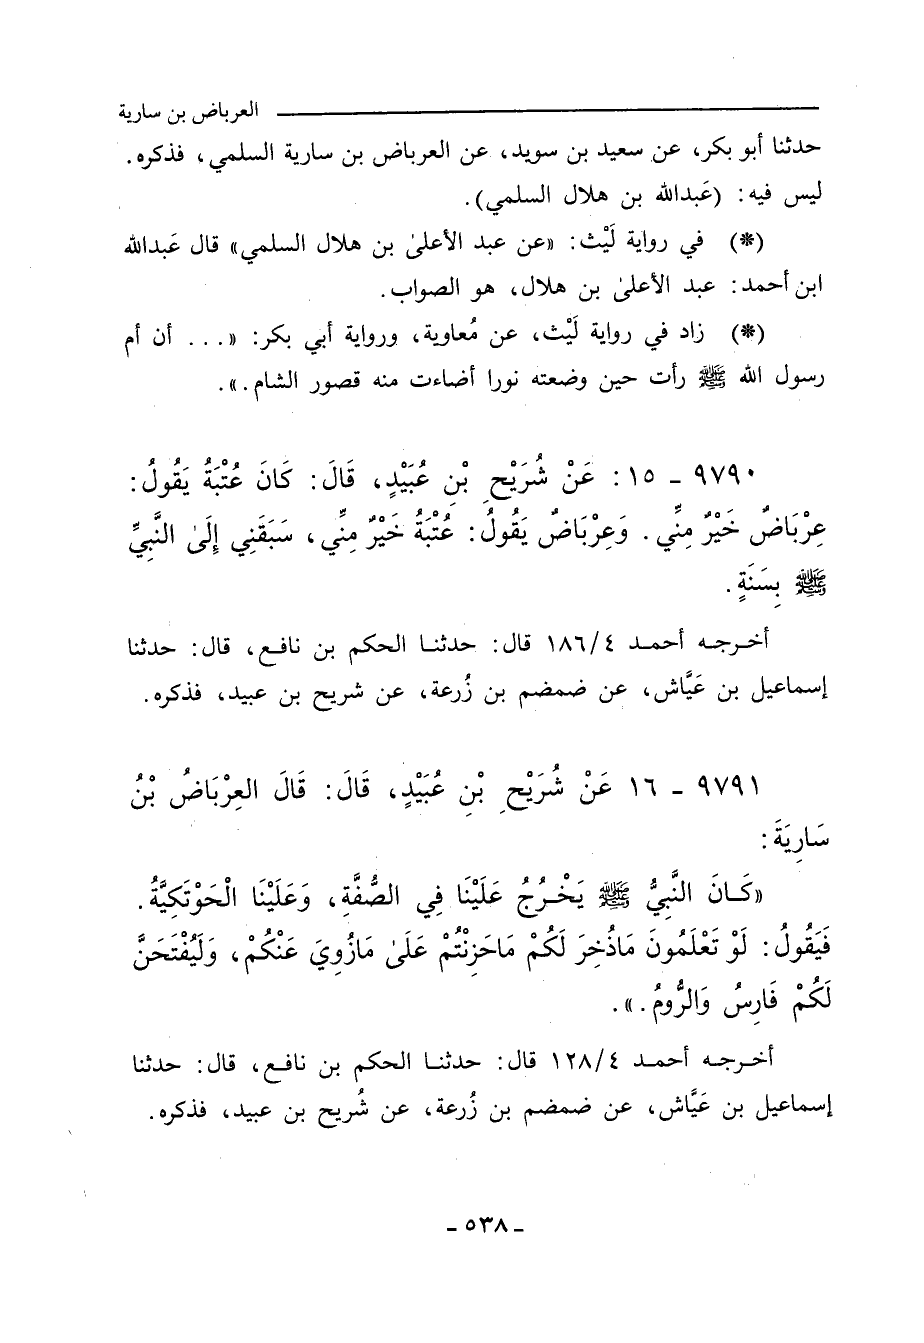 العرباض بن سارية
حدثنا أبو بكر، عن سعيد بن سويد، عن العرباض بن سارية السلمي، فذكره.
ليس فيه: (عَبدالله بن هلال السلمي).
(*) في رواية لَيْث: «عن عبد الأعلىٰ بن هلال السلمي» قال عَبدالله
ابن أحمد: عبد الأعلىٰ بن هلال، هو الصواب.
(*) زاد في رواية لَيْث، عن مُعاوية، ورواية أبي بكر: «... أن أم
رسول الله ﷺ رأت حين وضعته نورا أضاءت منه قصور الشام.».
٩٧٩٠ - ١٥: عَنْ شُرَيْحِ بْنِ عُبَيْدٍ، قَالَ: كَانَ عُتْبَةُ يَقُولُ:
عِرْبَاضٌ خَيْرٌ مِنِّي. وَعِرْبَاضٌ يَقُولُ: عُتْبَةُ خَيْرٌ مِنِّي، سَبَقَنِي إِلَىٰ النَّبِيِّ
ﷺ بِسَنَةٍ.
أخرجه أحمد ١٨٦/٤ قال: حدثنا الحكم بن نافع، قال: حدثنا
إسماعيل بن عَيَّاش، عن ضمضم بن زُرعة، عن شريح بن عبيد، فذكره.
٩٧٩١ - ١٦ عَنْ شُرَيْحِ بْنِ عُبَيْدٍ، قَالَ: قَالَ العِرْبَاضُ بْنُ
سَارِيَةَ:
«كَانَ النَّبِيُّ ﷺ يَخْرُجُ عَلَيْنَا فِي الصُّفَّةِ، وَعَلَيْنَا الْحَوْتَكِيَّةُ.
فَيَقُولُ: لَوْ تَعْلَمُونَ مَاذُخِرَ لَكُمْ مَاحَزِنْتُمْ عَلَىٰ مَازُوِيَ عَنْكُمْ، وَلَيُفْتَحَنَّ
لَكُمْ فَارِسُ وَالرُّومُ.».
أخرجه أحمد ١٢٨/٤ قال: حدثنا الحكم بن نافع، قال: حدثنا
إسماعيل بن عَيَّاش، عن ضمضم بن زُرعة، عن شُريح بن عبيد، فذكره.
- ٥٣٨ -